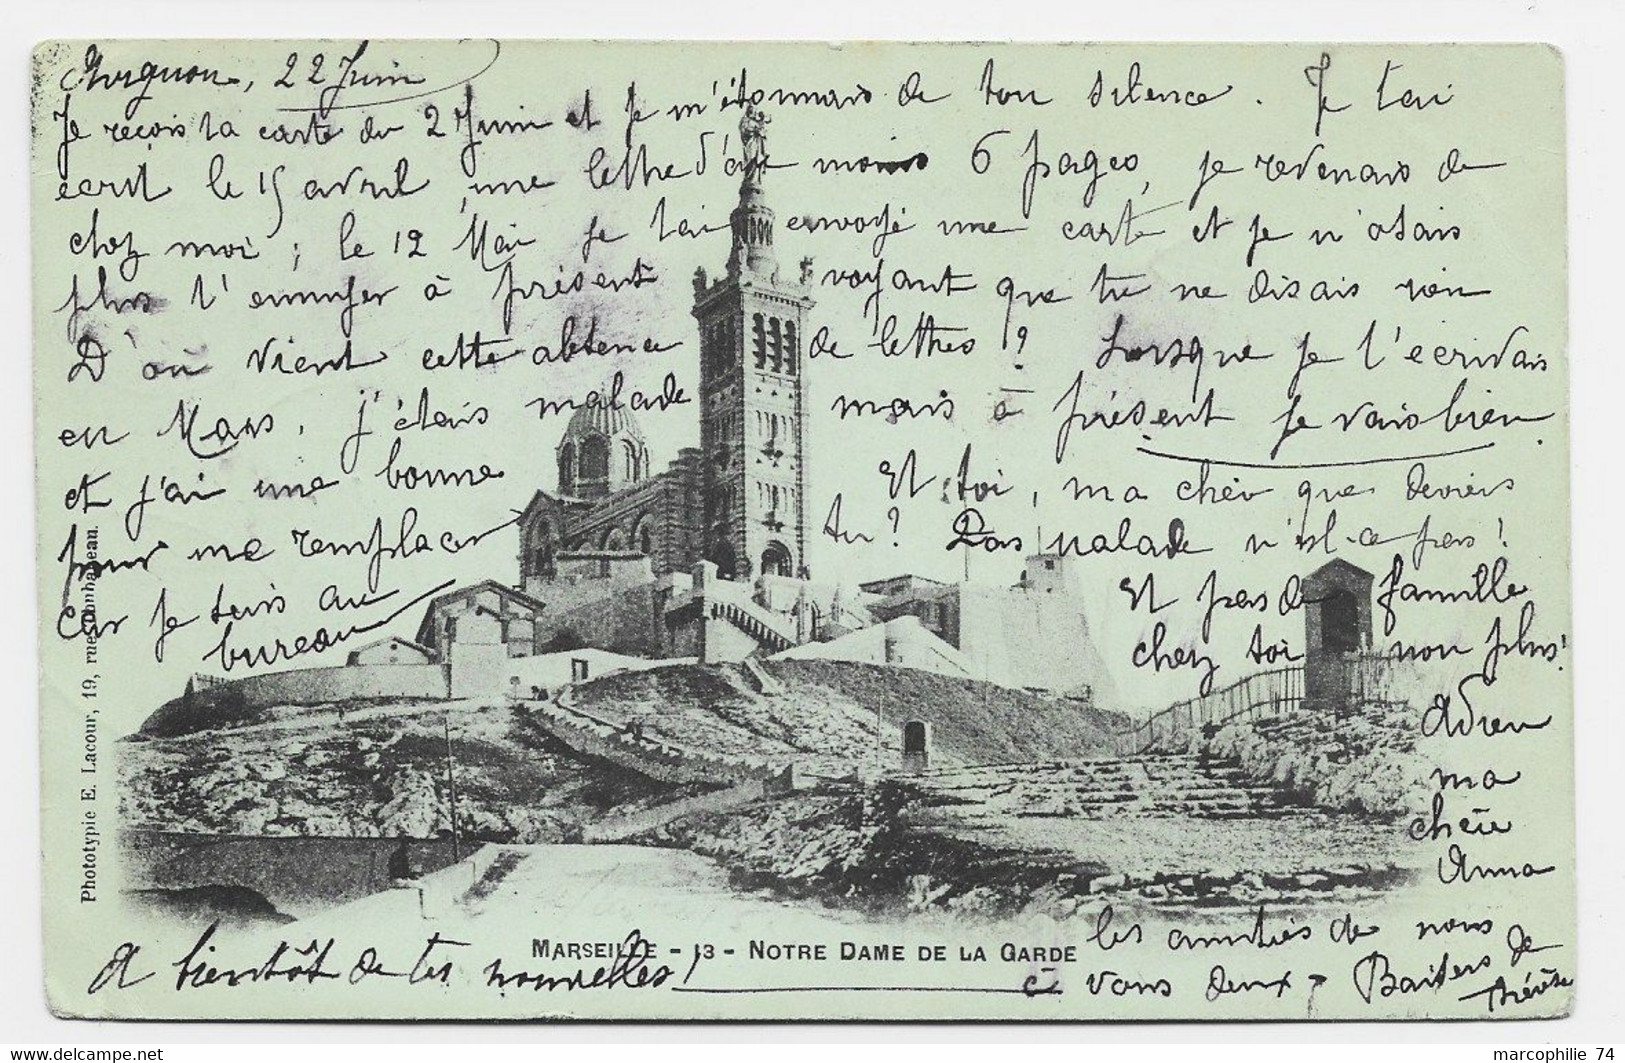 Avignon, 22 Juin
Je reçois ta carte du 2 Juin et je m'étonnais de ton silence. Je t'ai
écrit le 15 avril, une lettre d'au moins 6 pages, je revenais de
chez moi; le 12 Mai je t'ai envoyé une carte et je n'osais
plus t'ennuyer à présent voyant que tu ne disais rien
D'où vient cette absence de lettres? Lorsque je t'écrivais
en Mars, j'étais malade mais à présent je vais bien
et j'ai une bonne
pour me remplacer
car je suis au
bureau
Et toi, ma chér que deviens
tu? Pas malade n'est-ce pas!
Et pas de famille
chez toi non plus!
Adieu
ma
chère
Anna
les amitiés de nous
à vous deux
Baisers de
Thérèse
A bientôt de tes nouvelles!
Marseille - 13 - Notre Dame de la Garde
Phototypie E. Lacour, 19, rue
marcophilie 74